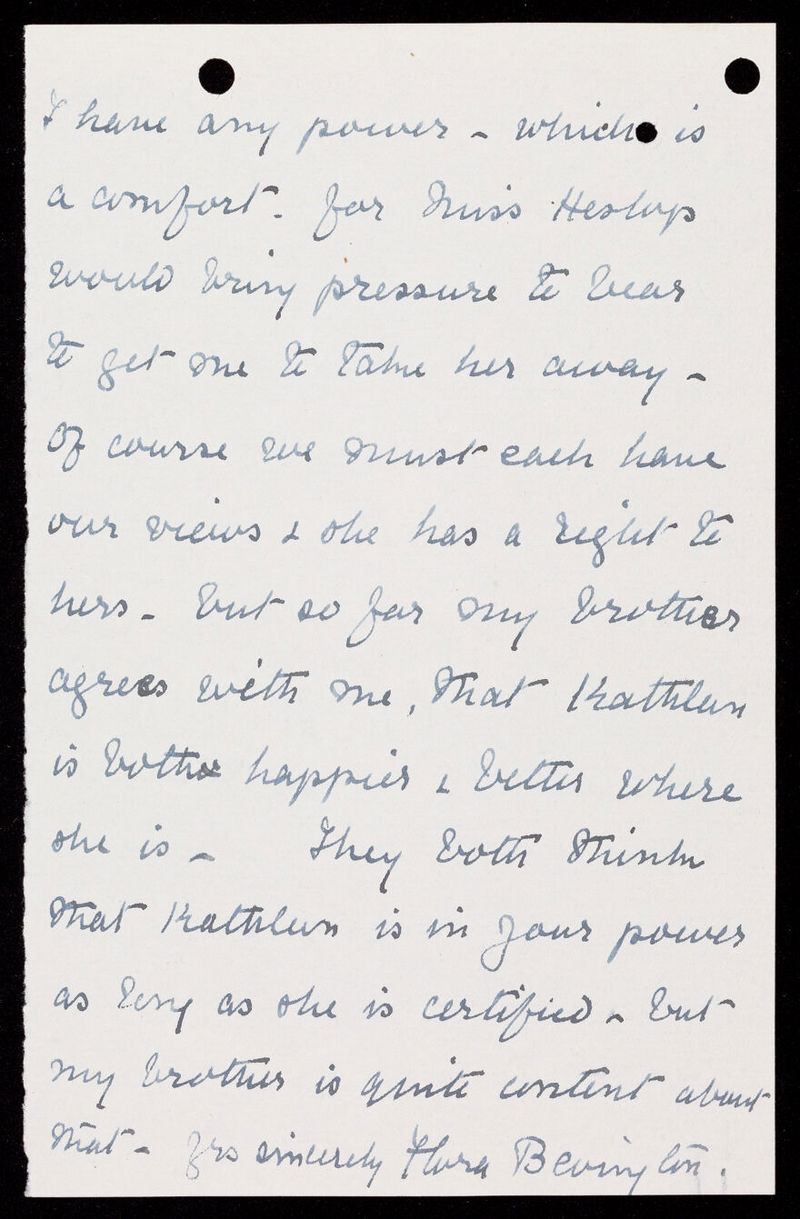 I have any power - which is
a comfort. for Miss Heslop
would bring pressure to bear
to get me to take her away -
Of course we must each have
our views & she has a right to
hers - but so far my brother
agrees with me, that Kathleen
is both happier & better where
she is - They both think
that Kathleen is in your power
as long as she is certified - but
my brother is quite content about
that - yrs sincerely Flora Bevington.